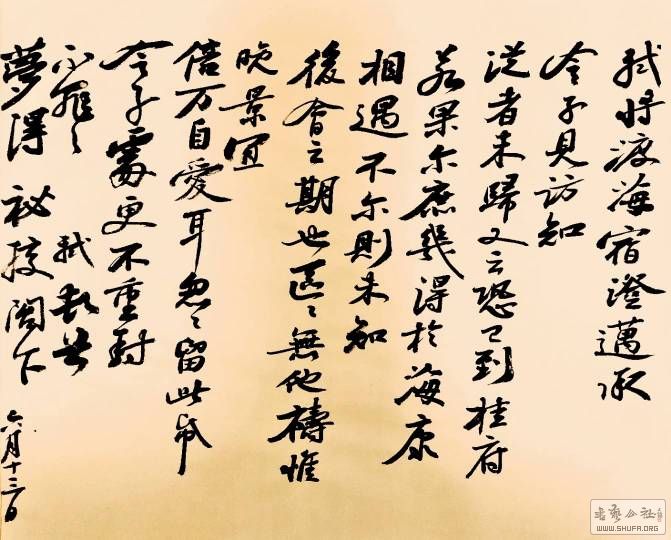 軾將渡海宿澄邁承
令子見訪知
從者未歸又云恐已到桂府
若果尔庶幾得於海康
相遇不尔則未知
後會之期也區〻無他禱惟
晚景宜
倍万自愛耳忽〻留此帋
令子處更不重封
不罪〻 軾頓首
夢得祕校閣下
六月十三日
書藝公社
WWW.SHUFA.ORG